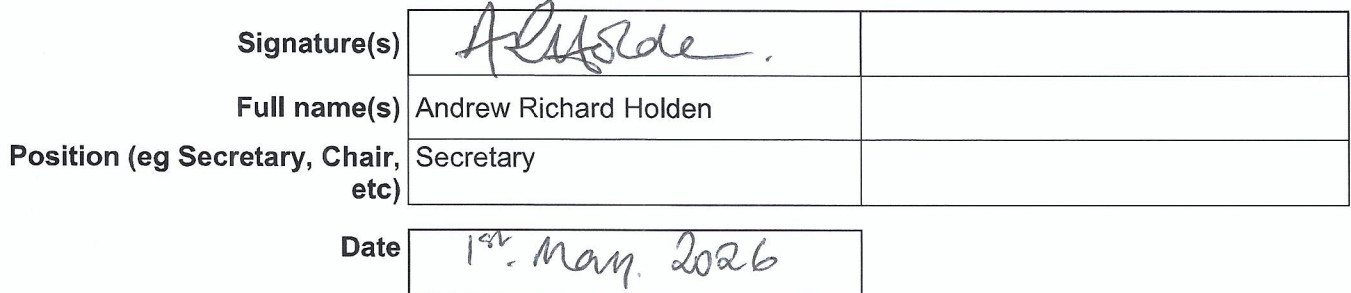 Signature(s) ARHolden.
Full name(s) Andrew Richard Holden
Position (eg Secretary, Chair, Secretary
etc)
Date 1st. May. 2026